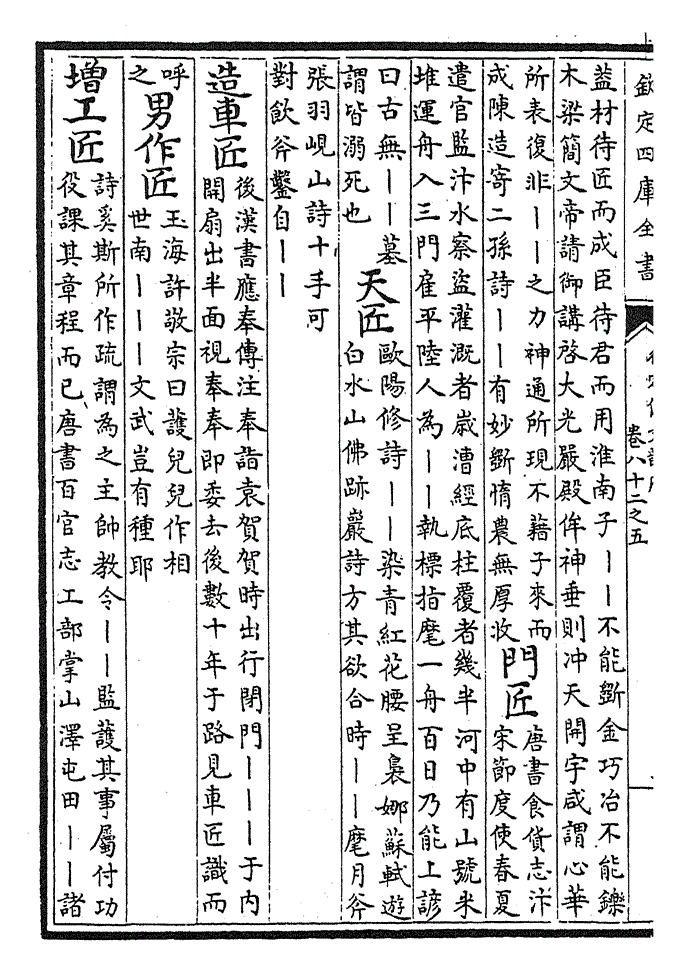 欽定四庫全書
卷八十二之五
葢材待匠而成臣待君而用淮南子丨丨不能斵金巧冶不能鑠
木梁簡文帝請御講啓大光嚴殿侔神垂則冲天開宇咸謂心華
所表復非丨丨之力神通所現不藉子來而
成陳造寄二孫詩丨丨有妙斵惰農無厚收
門匠
唐書食貨志汴
宋節度使春夏
遣官監汴水察盜灌溉者嵗漕經底柱覆者幾半河中有山號米
堆運舟入三門雇平陸人為丨丨執標指麾一舟百日乃能上諺
曰古無丨丨墓
謂皆溺死也
天匠
歐陽修詩丨丨染青紅花腰呈裊娜蘇軾遊
白水山佛跡巖詩方其欲合時丨丨麾月斧
張羽峴山詩十手可
對飲斧鑿自丨丨
造車匠
後漢書應奉傳注奉詣袁賀賀時出行閉門丨丨丨于内
開扇出半面視奉奉即委去後數十年于路見車匠識而
呼
之
男作匠
玉海許敬宗曰護兒兒作相
世南丨丨丨文武豈有種耶
增工匠
詩奚斯所作疏謂為之主帥教令丨丨監護其事屬付功
役課其章程而已唐書百官志工部掌山澤屯田丨丨諸